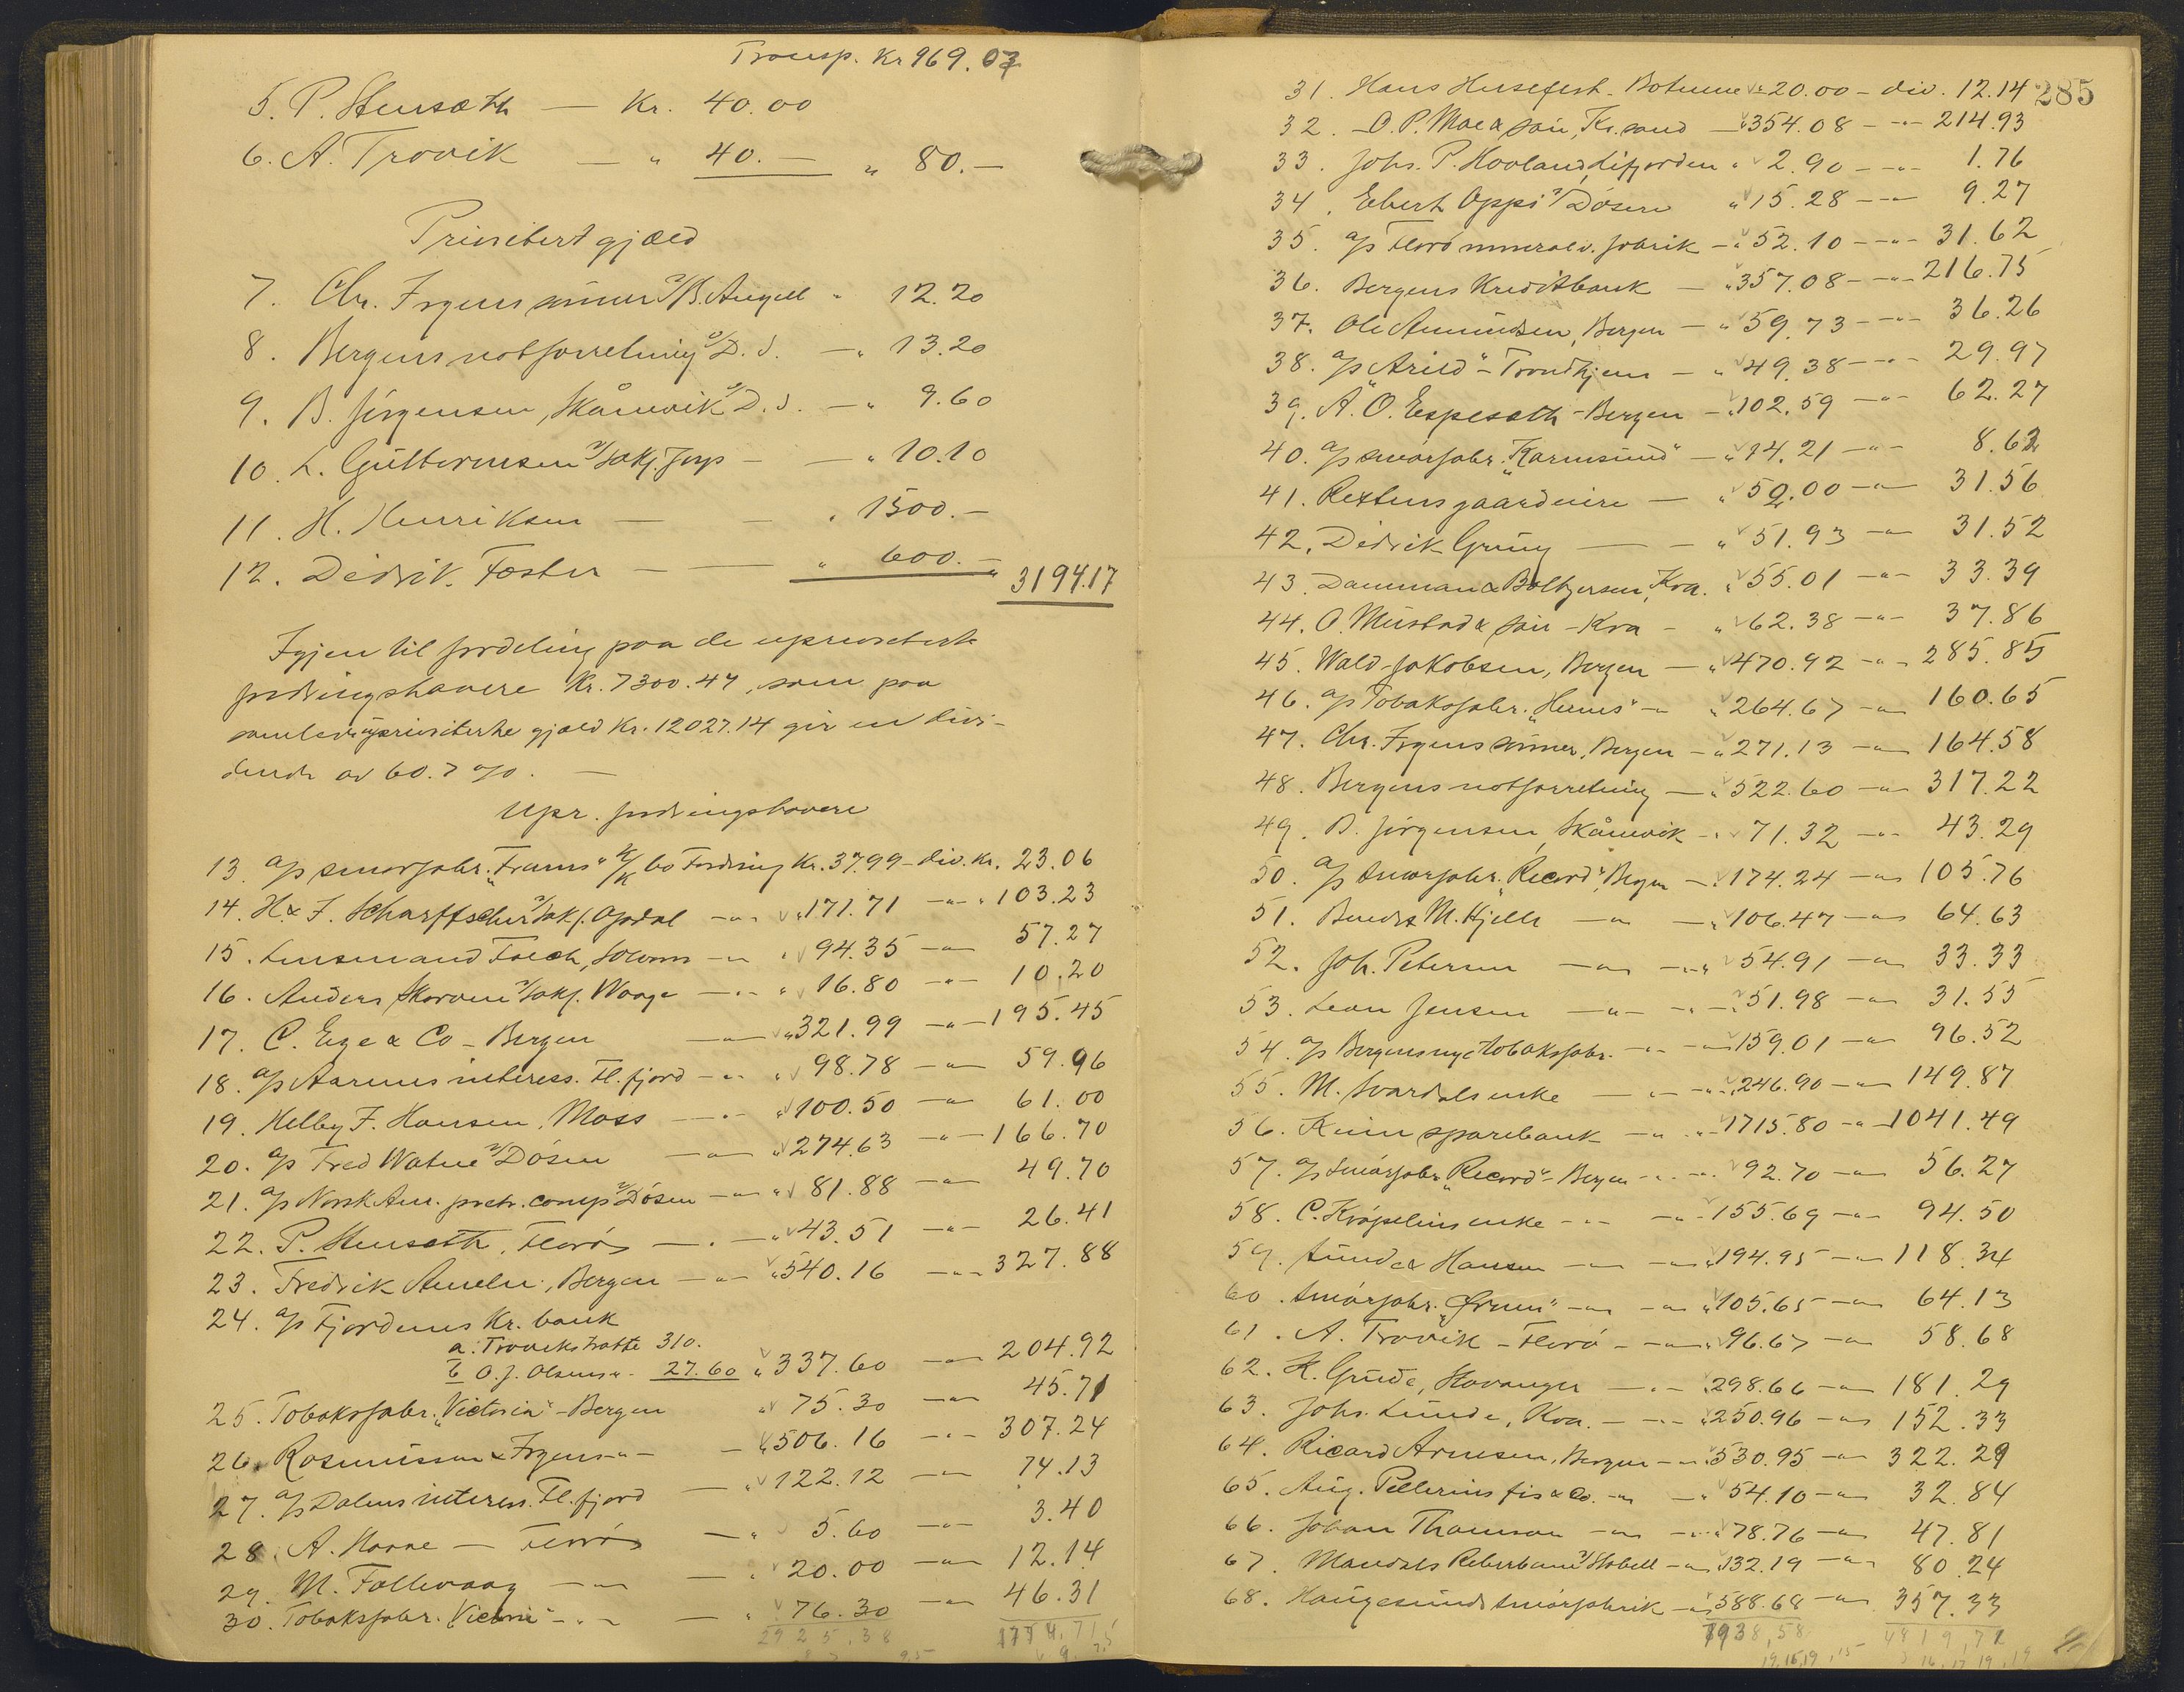 Transp. Kr 969.07
5. P. Stensæth — Kr. 40.00
6. A. Trovik — " 40.— " 80.—
Prioritert gjæld
7. Chr. Irgens sönner v/ B. Angell " 12.20
8. Bergens notforretning v/ D. S. — " 13.20
9. B. Jörgensen, Skånevik v/ D. S. — " 9.60
10. L. Guttormsen v/ sakf. Jorp — — " 10.10
11. H. Henriksen — — " 1500.—
12. Didrik Fester — — " 600.— " 3194.17
Igjen til fordeling paa de uprioriterte
fordringshavere Kr. 7300.47, som paa
samled uprioriterte gjæld Kr. 12027.14 gir en divi-
dende av 60.7 %. —
Upr. fordringshavere
13. A/S smörfabr. "Frams" K/K bo Fordring Kr. 37.99 - div. Kr. 23.06
14. H. & F. Scharffscher v/ sakf. Opdal — " — " 171.71 — " — " 103.23
15. Lensmand Friech, Solvorn — " — " 94.35 — " — 57.27
16. Anders Skorven v/ sakf. Waage — " — " 16.80 — " — 10.20
17. C. Ege & Co - Bergen — " — " 321.99 — " — 195.45
18. A/S Aarnes interess. Fl. fjord — " — " 98.78 — " — 59.96
19. Helby F. Hansen, Moss — " — " 100.50 — " — 61.00
20. A/S Fred Watne v/ Dösen — " — " 274.63 — " — 166.70
21. A/S Norsk Am. petr. comp v/ Dösen — " — " 81.88 — " — 49.70
22. P. Stensæth, Florö — " — " 43.51 — " — 26.41
23. Fredrik Ameln, Bergen — " — " 540.16 — " — 327.88
24. A/S Fjordenes Kr. bank
a. Troviks tratte 310.
b O. J. Olsens " 27.60 " 337.60 — " — 204.92
25. Tobaksfabr. "Victoria" - Bergen " 75.30 — " — 45.71
26. Rasmussen & Irgens — " — — " 506.16 — " — 307.24
27. A/S Dalens interess. Fl. fjord — " 122.12 — " — 74.13
28. A. Horne — Florö — " 5.60 — " — 3.40
29. M. Follevaag — " — — " 20.00 — " — 12.14
30. Tobaksfabr. Victoria — " — — " 76.30 — " — 46.31
2925,38 1774,71
285
31. Hans Husefest - Botnene Kr 20.00 - div. 12.14
32. O. P. Moe & sön, Kr. sand — " 354.08 — " — 214.93
33. Johs. P. Hovland, Lifjorden " 2.90 — " — 1.76
34. Ebert Oppi v/ Dösen " 15.28 — " — 9.27
35. A/S Florö mineralv. fabrik — " 52.10 — " — 31.62
36. Bergens Kreditbank — " 357.08 — " — 216.75
37. Ole Amundsen, Bergen — " 59.73 — " — 36.26
38. A/S "Arild" - Trondhjem — " 49.38 — " — 29.97
39. A. O. Espesæth - Bergen — " 102.59 — " — 62.27
40. A/S smörfabr. "Karmsund" — " 14.21 — " — 8.62
41. Rextens gaardeiere — " 52.00 — " — 31.56
42. Didrik Grung — — " 51.93 — " — 31.52
43. Damman & Boltzersen, Kra. " 55.01 — " — 33.39
44. O. Mustad & sön - Kra — " 62.38 — " — 37.86
45. Wald. Jakobsen, Bergen — " 470.92 — " — 285.85
46. A/S Tobaksfabr. "Hermes" — " — " 264.67 — " — 160.65
47. Chr. Irgens sönner, Bergen — " 271.13 — " — 164.58
48. Bergens notforretning — " 522.60 — " — 317.22
49. B. Jörgensen, Skånevik — " 71.32 — " — 43.29
50. A/S smörfabr. "Record", Bergen — " 174.24 — " — 105.76
51. Bendix M. Hjelle — " — — " 106.47 — " — 64.63
52. Joh. Petersen — " — — " 54.91 — " — 33.33
53. Leon Jensen — " — — " 51.98 — " — 31.55
54. A/S Bergens nye tobaksfabr. — " — " 159.01 — " — 96.52
55. M. Svardals enke — " — — " 246.90 — " — 149.87
56. Kinn sparebank — " — " 1715.80 — " — 1041.49
57. A/S smörfabr. "Record" - Bergen — " — " 92.70 — " — 56.27
58. C. Kröpeliens enke — " — — " 155.69 — " — 94.50
59. Lund & Hansen — " — — " 194.95 — " — 118.34
60. Smörfabr. "Ørnen" — " — — " 105.65 — " — 64.13
61. A. Trovik - Florö — " — " 96.67 — " — 58.68
62. K. Grude, Stavanger — " — 298.66 — " — 181.29
63. Johs. Lunde, Kra. — " — " 250.96 — " — 152.33
64. Ricard Arnesen, Bergen — " 530.95 — " — 322.29
65. Aug. Pellerins fis & Co. — " — " 54.10 — " — 32.84
66. Johan Thomson — " — " 78.76 — " — 47.81
67. Mandals Reberbane v/ Stabell — " 132.19 — " — 80.24
68. Haugesunds smörfabrik — " 588.68 — " — 357.33
7938,58 4819,72